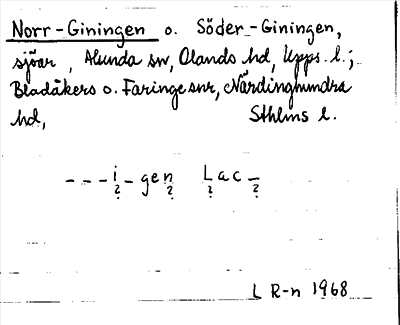 Norr-Giningen o. Söder-Giningen,
sjöar, Alunda sn, Olands hd, Upps. l.;
Bladåkers o. Faringe snr, Närdinghundra
hd, Sthlms l.
---i-gen Lac_
? ? ? ?
L R-n 1968